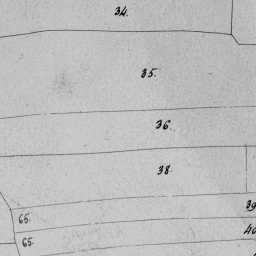 34.
35.
36.
38.
39
65.
40
65.